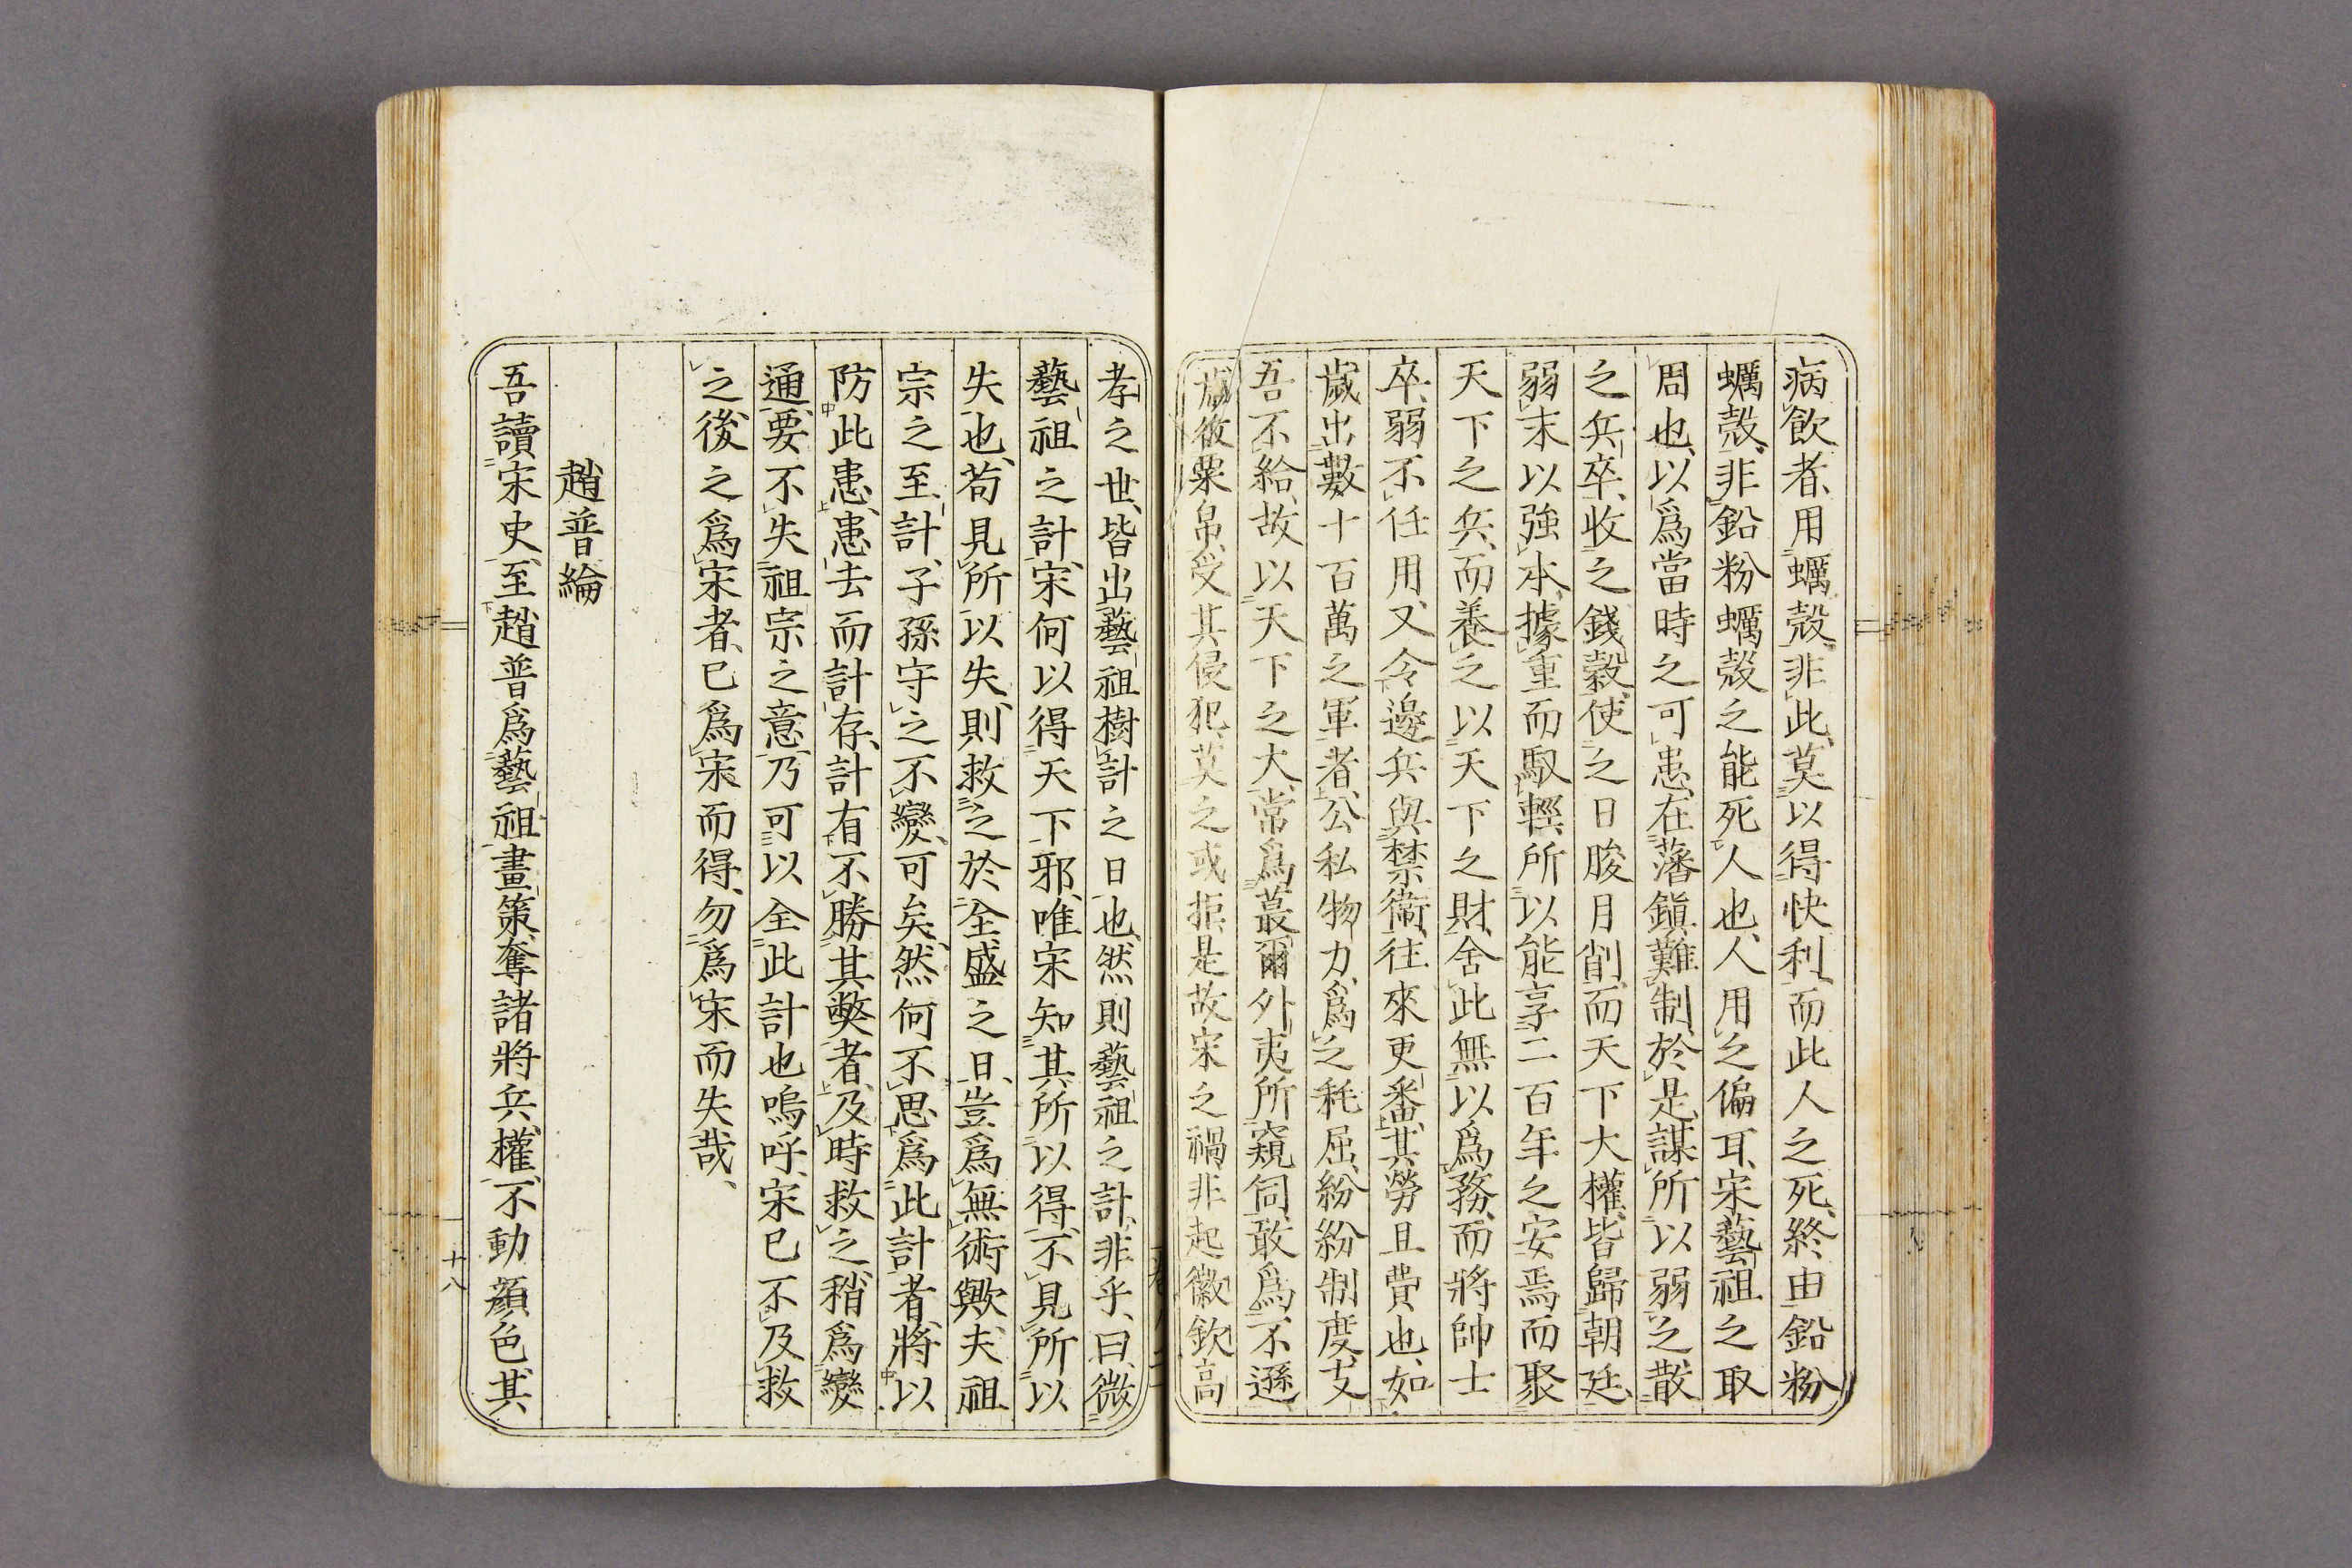 病飮者、用蠣殼、非此、莫以得快利、而此人之死、終由鉛粉
蠣殼、非鉛粉蠣殼之能死人也、人用之偏耳、宋藝祖之取
周也、以爲當時之可患、在藩鎭難制、於是謀所以弱之、散
之兵卒、收之錢穀、使之日朘月削、而天下大權、皆歸朝廷、
弱末以強本、據重而馭輕、所以能享二百年之安焉、而聚
天下之兵、而養之以天下之財、舍此無以爲務、而將帥士
卒、弱不任用、又令邊兵與禁衞、往來更番、其勞且費也、如
歲出數十百萬之軍者、公私物力、爲之耗屈、紛紛制度、支
吾不給、故以天下之大、常爲蕞爾外夷所窺伺、敢爲不遜、
歲收粟帛、受其侵犯、莫之或拒、是故宋之禍、非起徽欽高
孝之世、皆出藝祖樹計之日也、然則藝祖之計、非乎、曰、微
藝祖之計、宋何以得天下邪、唯宋知其所以得、不見所以
失也、苟見所以失、則救之於全盛之日、豈爲無術歟、夫祖
宗之至計、子孫守之不變、可矣、然何不思爲此計者、將以
防此患、患去而計存、計有不勝其弊者、及時救之、稍爲變
通、要不失祖宗之意、乃可以全此計也、嗚呼、宋已不及救
之、後之爲宋者、已爲宋而得、勿爲宋而失哉、
趙普綸
吾讀宋史、至趙普爲藝祖畫策、奪諸將兵權、不動顏色、其
十八